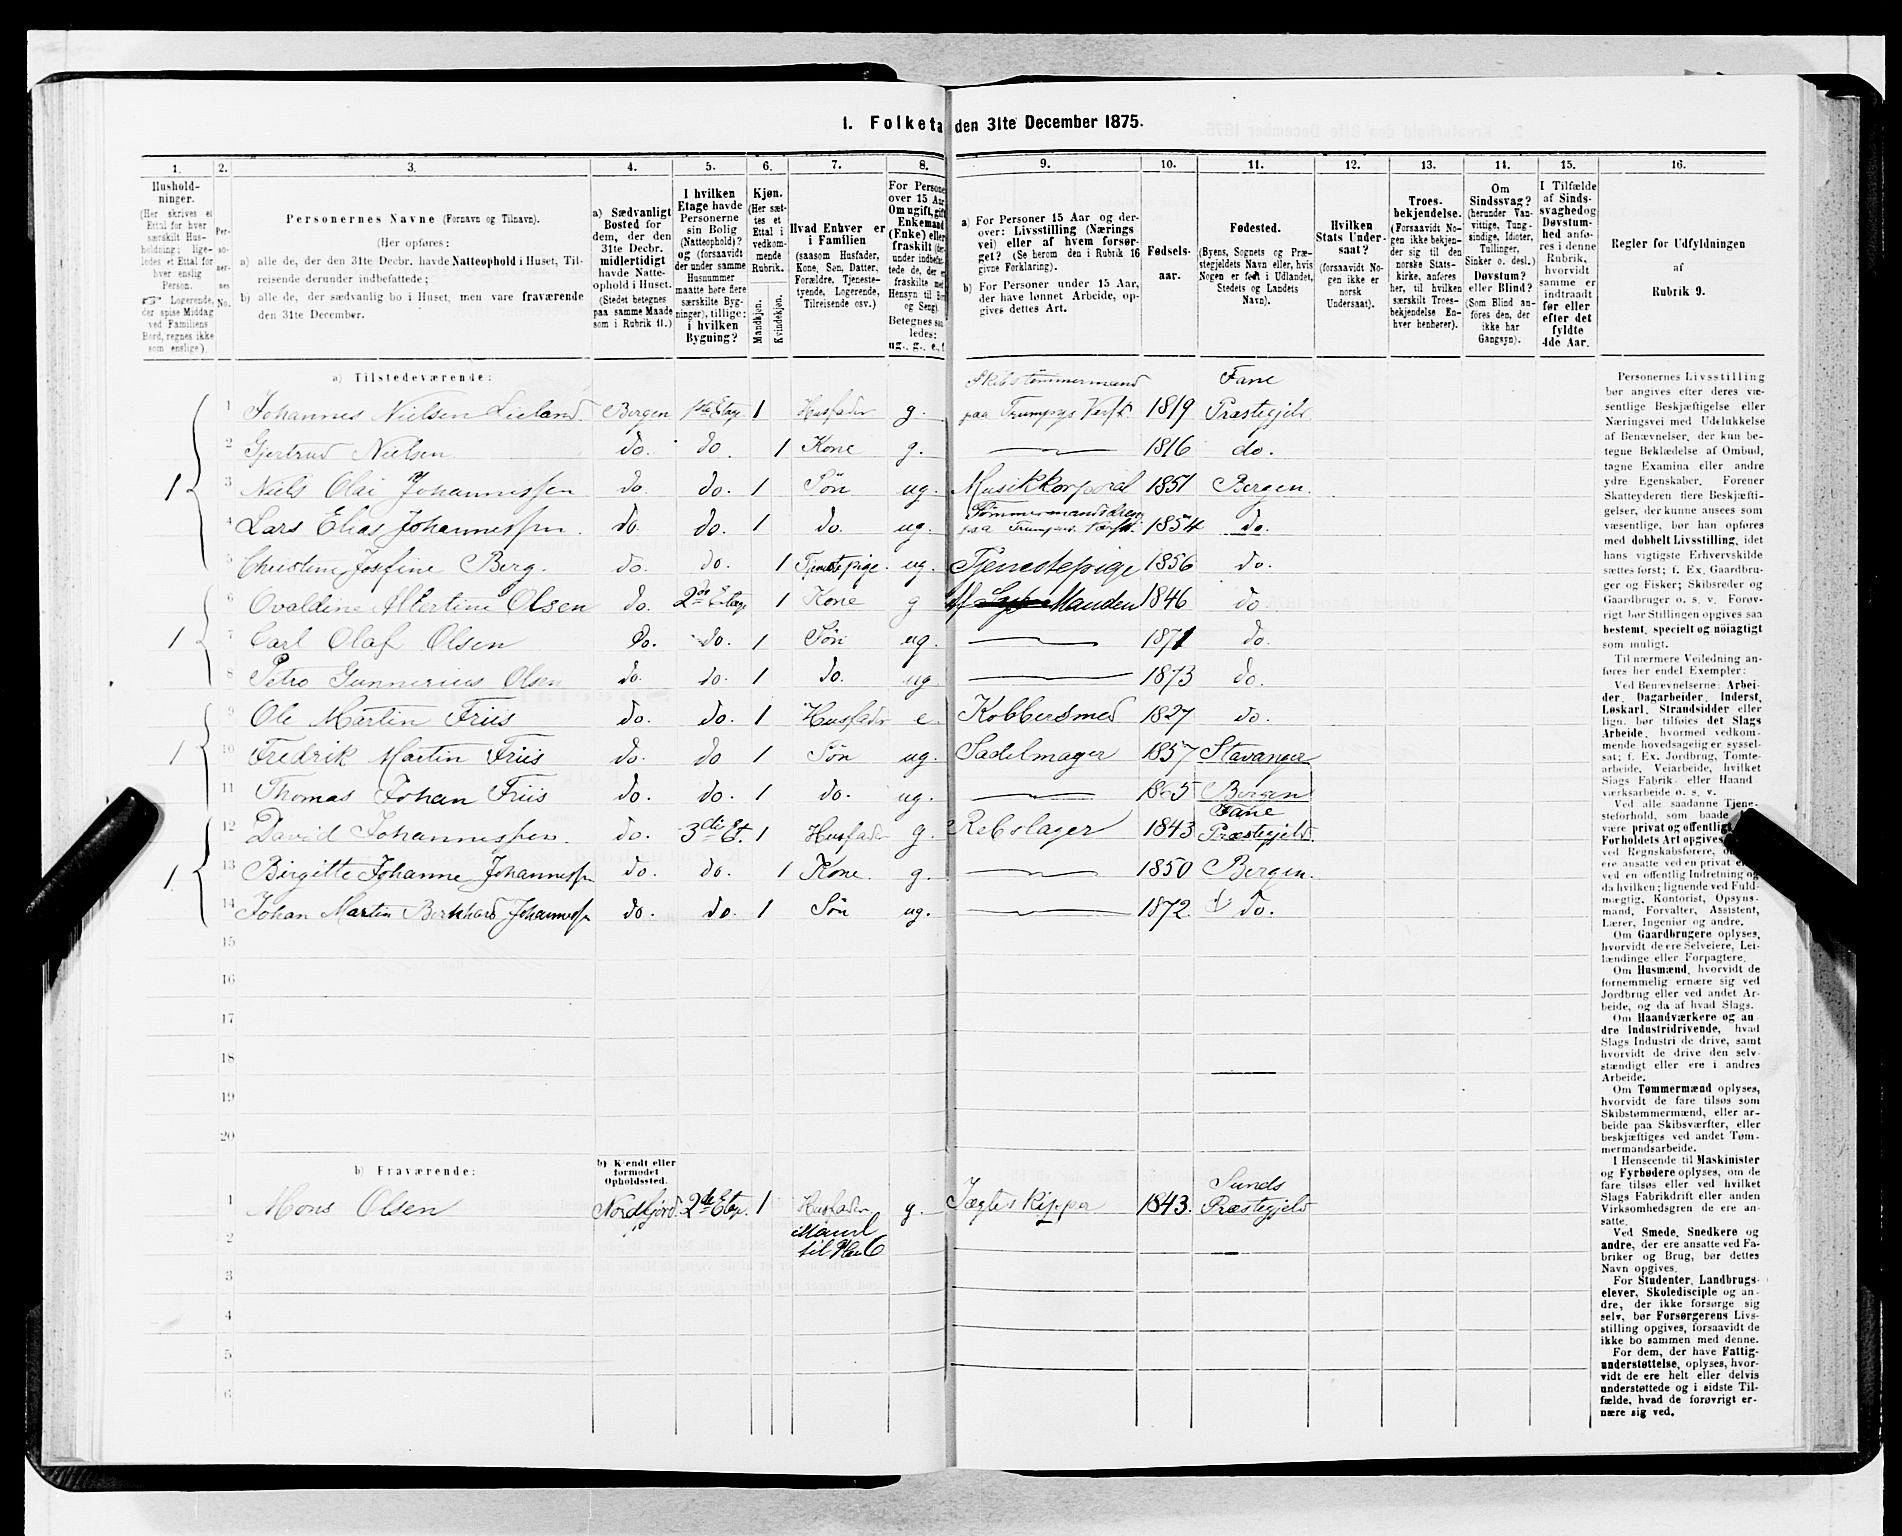 1. Folketa den 31te December 1875.
1. 2. 3. 4. 5. 6. 7. 8. 9. 10. 11. 12. 13. 14. 15. 16.
Hushold-
ninger.
(Her skrives et
Ettal for hver
særskilt Hus-
holdning; lige-
ledes et Ettal for
hver enslig
Person.
☞ Logerende,
der spise Middag
ved Familiens
Bord, regnes ikke
som enslige).
Per-
so-
ner-
nes
No.
Personernes Navne (Fornavn og Tilnavn).
(Her opføres:
a) alle de, der den 31te Decbr. havde Natteophold i Huset, Til-
reisende derunder indbefattede;
b) alle de, der sædvanlig bo i Huset, men vare fraværende
den 31te December.
a) Sædvanligt
Bosted for
dem, der den
31te Decbr.
midlertidigt
havde Natte-
ophold i Huset.
(Stedet betegnes
paa samme Maade
som i Rubrik 11.)
I hvilken
Etage havde
Personerne
sin Bolig
(Natteophold)?
og (forsaavidt
der under samme
Husnummer
maatte høre flere
særskilte Byg-
ninger), tillige:
i hvilken
Bygning?
Kjøn.
(Her sæt-
tes et
Ettal i
vedkom-
mende
Rubrik.
Mandkjøn.
Kvindekjøn.
Hvad Enhver er
i Familien
(saasom Husfader,
Kone, Søn, Datter,
Forældre, Tjeneste-
tyende, Logerende,
Tilreisende osv.)
For Persone
over 15 Aar
Om ugift, gift
Enkemand
(Enke) eller
fraskilt (der-
under indbefat-
tede de, der er
fraskilte med
Hensyn til Bor
og Seng).
Betegnes saa-
ledes:
ug., g., e., f.
a) For Personer 15 Aar og der-
over: Livsstilling (Nærings
vei) eller af hvem forsør-
get? (Se herom den i Rubrik 16
givne Forklaring).
b) For Personer under 15 Aar,
der have lønnet Arbeide, op-
gives dettes Art.
Fødsels-
aar.
Fødested.
(Byens, Sognets og Præ-
stegjeldets Navn eller, hvis
Nogen er født i Udlandet,
Stedets og Landets
Navn).
Hvilken
Stats Under-
saat?
(forsaavidt No-
gen ikke er
norsk
Undersaat).
Troes-
bekjendelse.
(Forsaavidt No-
gen ikke bekjen-
der sig til den
norske Stats-
kirke, anføres
her, til hvilken
særskilt Troes-
bekjendelse En-
hver henhører).
Om
Sindssvag?
(herunder Van-
vittige, Tung-
sindige, Idioter,
Tullinger,
Sinker o. desl.)
Døvstum?
eller Blind?
(Som Blind an-
føres den, der
ikke har
Gangsyn).
I Tilfælde
af Sinds-
svaghed og
Døvstum-
hed anfø-
res i denne
Rubrik,
hvorvidt
samme er
indtraadt
før eller
efter det
fyldte
4de Aar.
Regler for Udfyldningen
af
Rubrik 9.
a) Tilstedeværende:
1 Johannes Nielsen Lieland Bergen 1ste Etage 1 Husfader g. Skibstømmermand paa Trumpys Verft. 1819 Fane Præstegjeld
2 Gjertrud Nielsen do. do. 1 Kone g. 1816 do.
1 3 Niels Olai Johannessen do. do. 1 Søn ug. Musikkorporal 1851 Bergen.
4 Lars Elias Johannessen do. do. 1 do. ug. paa Trumpys Verft. 1854 do.
5 Christine Josfine Berg. do. do. 1 Tjenestepige. ug. Tjenestepige 1856 do.
6 Ovaldine Albertine Olsen do. 2den Etage 1 Kone g af Manden 1846 do
1 7 Carl Olaf Olsen Do. do. 1 Søn ug. 1871 do.
8 Petro Gunnerius Olsen do. do. 1 do. ug. 1873 do.
9 Ole Martin Friis do. do. 1 Husfader e. Kobbersmed 1827 do.
1 10 Fredrik Martin Friis do. do 1 Søn ug. Sadelmager 1857 Stavanger
11 Thomas Johan Friis do. do. 1 do. ug. 1865 Bergen
12 David Johannessen do. 3die Et. 1 Husfader g. Rebslager 1843 Fane Præstegjeld.
1 13 Birgitte Johanne Johannessen do. do. 1 Kone. g. 1850 Bergen.
14 Johan Martin Bernhard Johannessen do. do. 1 Søn ug. 1872. do.
15
16
17
18
19
20
b) Fraværende:
b) Kjendt eller
formodet
Opholdssted.
1 Mons Olsen Nordfjord. 2de Etage 1 Husfader Mand til No 6 g. Jægteskipper 1843. Sunds Præstegjeld
2
3
4
5
6
Personernes Livsstilling
bør angives efter deres væ-
sentlige Beskjæftigelse eller
Næringsvei med Udelukkelse
af Benævnelser, der kun be-
tegne Beklædelse af Ombud,
tagne Examina eller andre
ydre Egenskaber. Forener
Skatteyderen flere Beskjæfti-
gelser, der kunne ansees som
væsentlige, bør han opføres
med dobbelt Livsstilling, idet
hans vigtigste Erhvervskilde
sættes først; f. Ex. Gaardbru-
ger og Fisker; Skibsreder og
Gaardbruger o. s. v. Forøv-
rigt bør Stillingen opgives saa
bestemt, specielt og nöiagtigt
som muligt.
Til nærmere Veiledning an-
føres her endel Exempler:
Ved Benævnelserne: Arbei-
der, Dagarbeider, Inderst,
Løskarl, Strandsidder eller
lign. bør tilføies det Slags
Arbeide, hvormed vedkom-
mende hovedsagelig er syssel-
sat; f. Ex. Jordbrug, Tomte-
arbeide, Veiarbeide, hvilket
Slags Fabrik- eller Haand
værksarbeide o. s. v.
Ved alle saadanne Tjene-
steforhold, som baade
være privat og offentlig
Forholdets Art opgives
ved Regnskabsførere,
ere ansatte ved en privat
ved en offentlig Indretning og
da hvilken; lignende ved Fuld-
mægtig, Kontorist, Opsyns-
mand, Forvalter, Assistent,
Lærer, Ingeniør og andre.
Om Gaardbrugere oplyses,
hvorvidt de ere Selveiere, Lei-
lændinge eller Forpagtere.
Om Husmænd, hvorvidt de
fornemmelig ernære sig ved
Jordbrug eller ved andet Ar-
beide, og da af hvad Slags.
Om Haandværkere og an
dre Industridrivende, hvad
Slags Industri de drive, samt
hvorvidt de drive den selv-
stændigt eller ere i andres
Arbeide.
Om Tømmermænd oplyses,
hvorvidt de fare tilsøs som
Skibstømmermænd, eller ar-
beide paa Skibsværfter, eller
beskjæftiges ved andet Tøm-
mermandsarbeide.
I Henseende til Maskinister
og Fyrbødere oplyses, om de
fare tilsøs eller ved hvilket
Slags Fabrikdrift eller anden
Virksomhedsgren de ere an-
satte.
Ved Smede, Snedkere og
andre, der ere ansatte ved Fa-
briker og Brug, bør dettes
Navn opgives.
For Studenter, Landbrugs-
elever, Skoledisciple og an-
dre, der ikke forsørge sig
selv, bør Forsørgerens Livs-
stilling opgives, forsaavidt de
ikke bo sammen med denne.
For dem, der have Fattig-
understøttelse, oplyses, hvor-
vidt de ere helt eller delvis
understøttede og i sidste Til-
fælde, hvad de forøvrigt er-
nære sig ved.